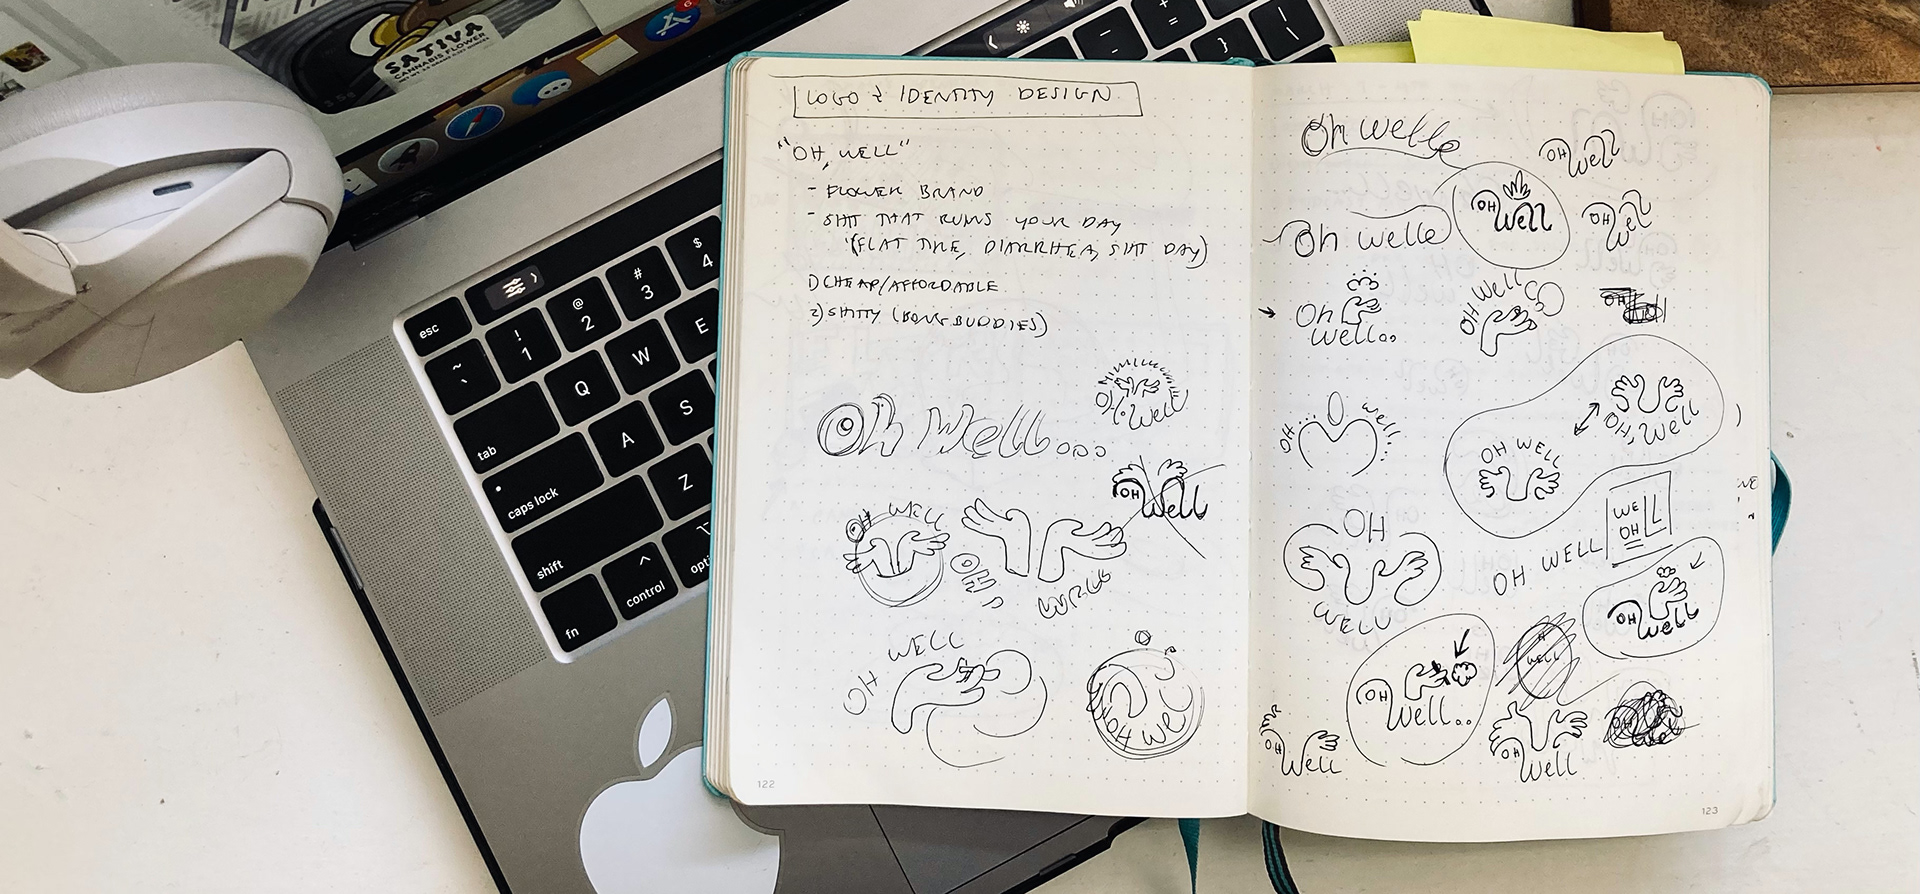 SATIVA
CANNABIS FLOWER
esc
~
`
!
1
@
2
#
3
$
4
tab
Q
W
E
caps lock
A
S
shift
Z
fn
^
control
opti
-
+
=
}
LOGO & IDENTITY DESIGN
"OH, WELL"
- FLOWER BRAND
- SHIT THAT RUINS YOUR DAY
(FLAT TIRE, DIARRHEA, SHIT DAY)
1) CHEAP/AFFORDABLE
2) SHITTY (BONG BUDDIES)
OH. Well
Oh Well...
OH Well
OH WELL
OH,
WELL
OH WELL
OH WELL
122
Oh Welle
OH Well
OH Well
OH Well
Oh welle
Oh Well..
OH Well
OH Well
OH... Well...
OH, Well
OH WELL
WE
OH
LL
OH WELL
OH
WELL
OH Well
OH Well..
WELL
OH Well
OH Well
123